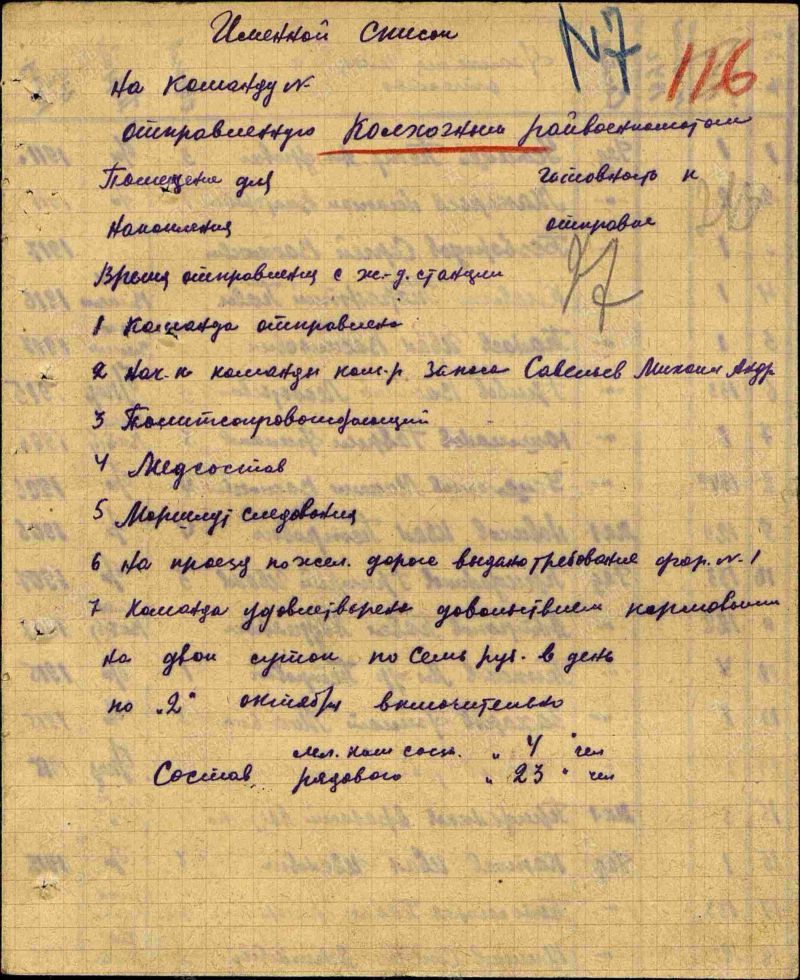 Именной список
N7
116
на команду №
отправленную Колхозным райвоенкоматом
Помещение для готовность к
накопления отправке
Время отправления с ж-д. станции
1 Команда отправлена
2 Нач-к команды ком-р запаса Савельев Михаил Андр
3 Политсопровождающий
4 Медсостав
5 Маршрут следования
6 На проезд по жел. дороге выдано требование фор. №1
7 Команда удовлетворена довольствием кормовыми
на двои суток по семь руб. в день
по "2" октября включительно
мл. нач сост. " 4 " чел
Состав рядового " 23 " чел